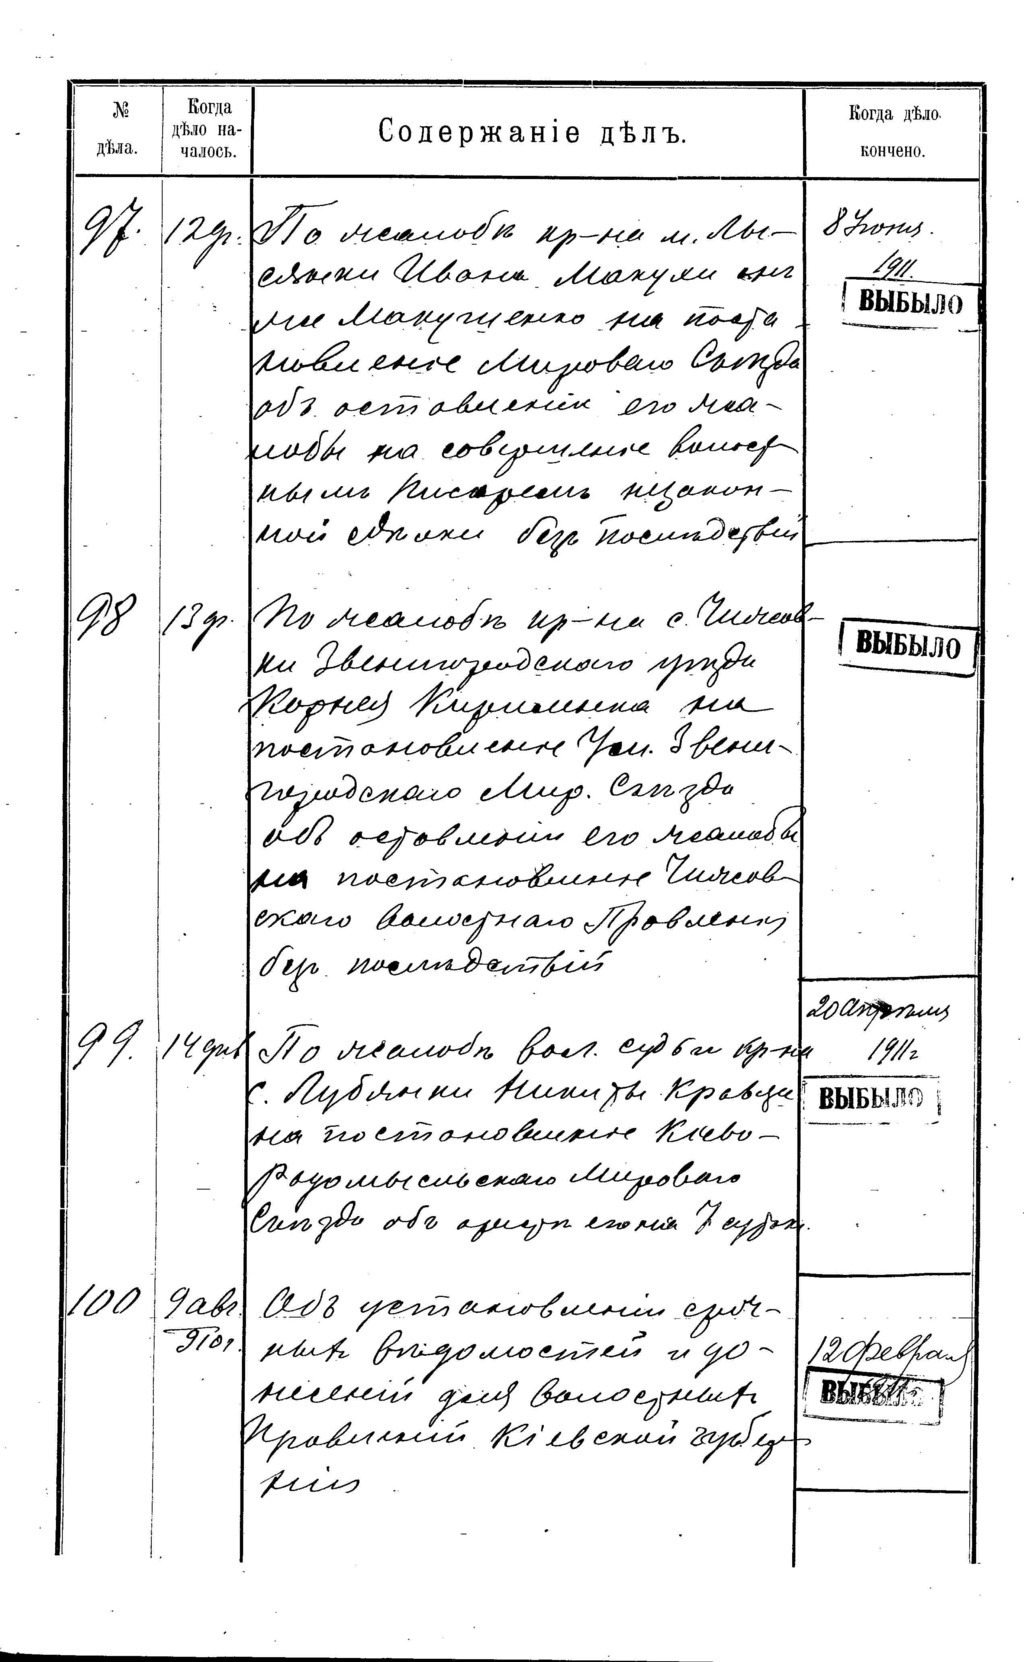 № дѣла.
Когда дѣло на-чалось.
Содержаніе дѣлъ.
Когда дѣло кончено.
97. 12 д. По жалобѣ кр-на м. Лы-
сянки Ивана Макухи или
же Макушенко на поста
новленіе Мироваго Съѣзда
объ оставленіи его жа-
лобы на совершеніе волост
нымъ Писаремъ незакон-
ной сдѣлки безъ послѣдствій
8 Іюня.
1911.
ВЫБЫЛО
98 13 д. По жалобѣ кр-на с. Чижов-
ки Звенигородскаго уѣзда
Корнея Кирилюка на
постановленіе Звени-
городскаго Мир. Съѣзда
объ оставленіи его жалобы
на постановленіе Чижов-
скаго Волостнаго Правленія
безъ послѣдствій
ВЫБЫЛО
99. 14 дек По жалобѣ вол. судьи кр-на
с. Лубянки Никиты Кравца
на постановленіе Кіево-
Радомысльскаго Мироваго
Съѣзда объ арестѣ его на 7 сутокъ.
20 Апрѣля
1911 г
ВЫБЫЛО
100 9 авг. 910 г. Объ установленіи сроч-
ныхъ вѣдомостей и до-
несеній для Волостныхъ
Правленій Кіевской губер
ніи
12 февраля
ВЫБЫЛО